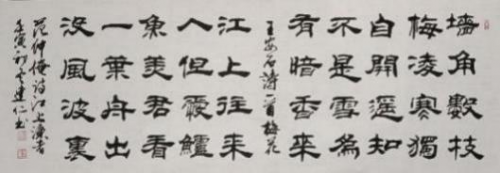 墙角數枝
梅凌寒獨
自開遥知
不是雪為
有暗香來
王安石詩一首梅花
江上往來
人但愛鱸
魚美君看
一葉舟出
没風波裏
范仲淹詩江上漁者
壬寅初 建仁书